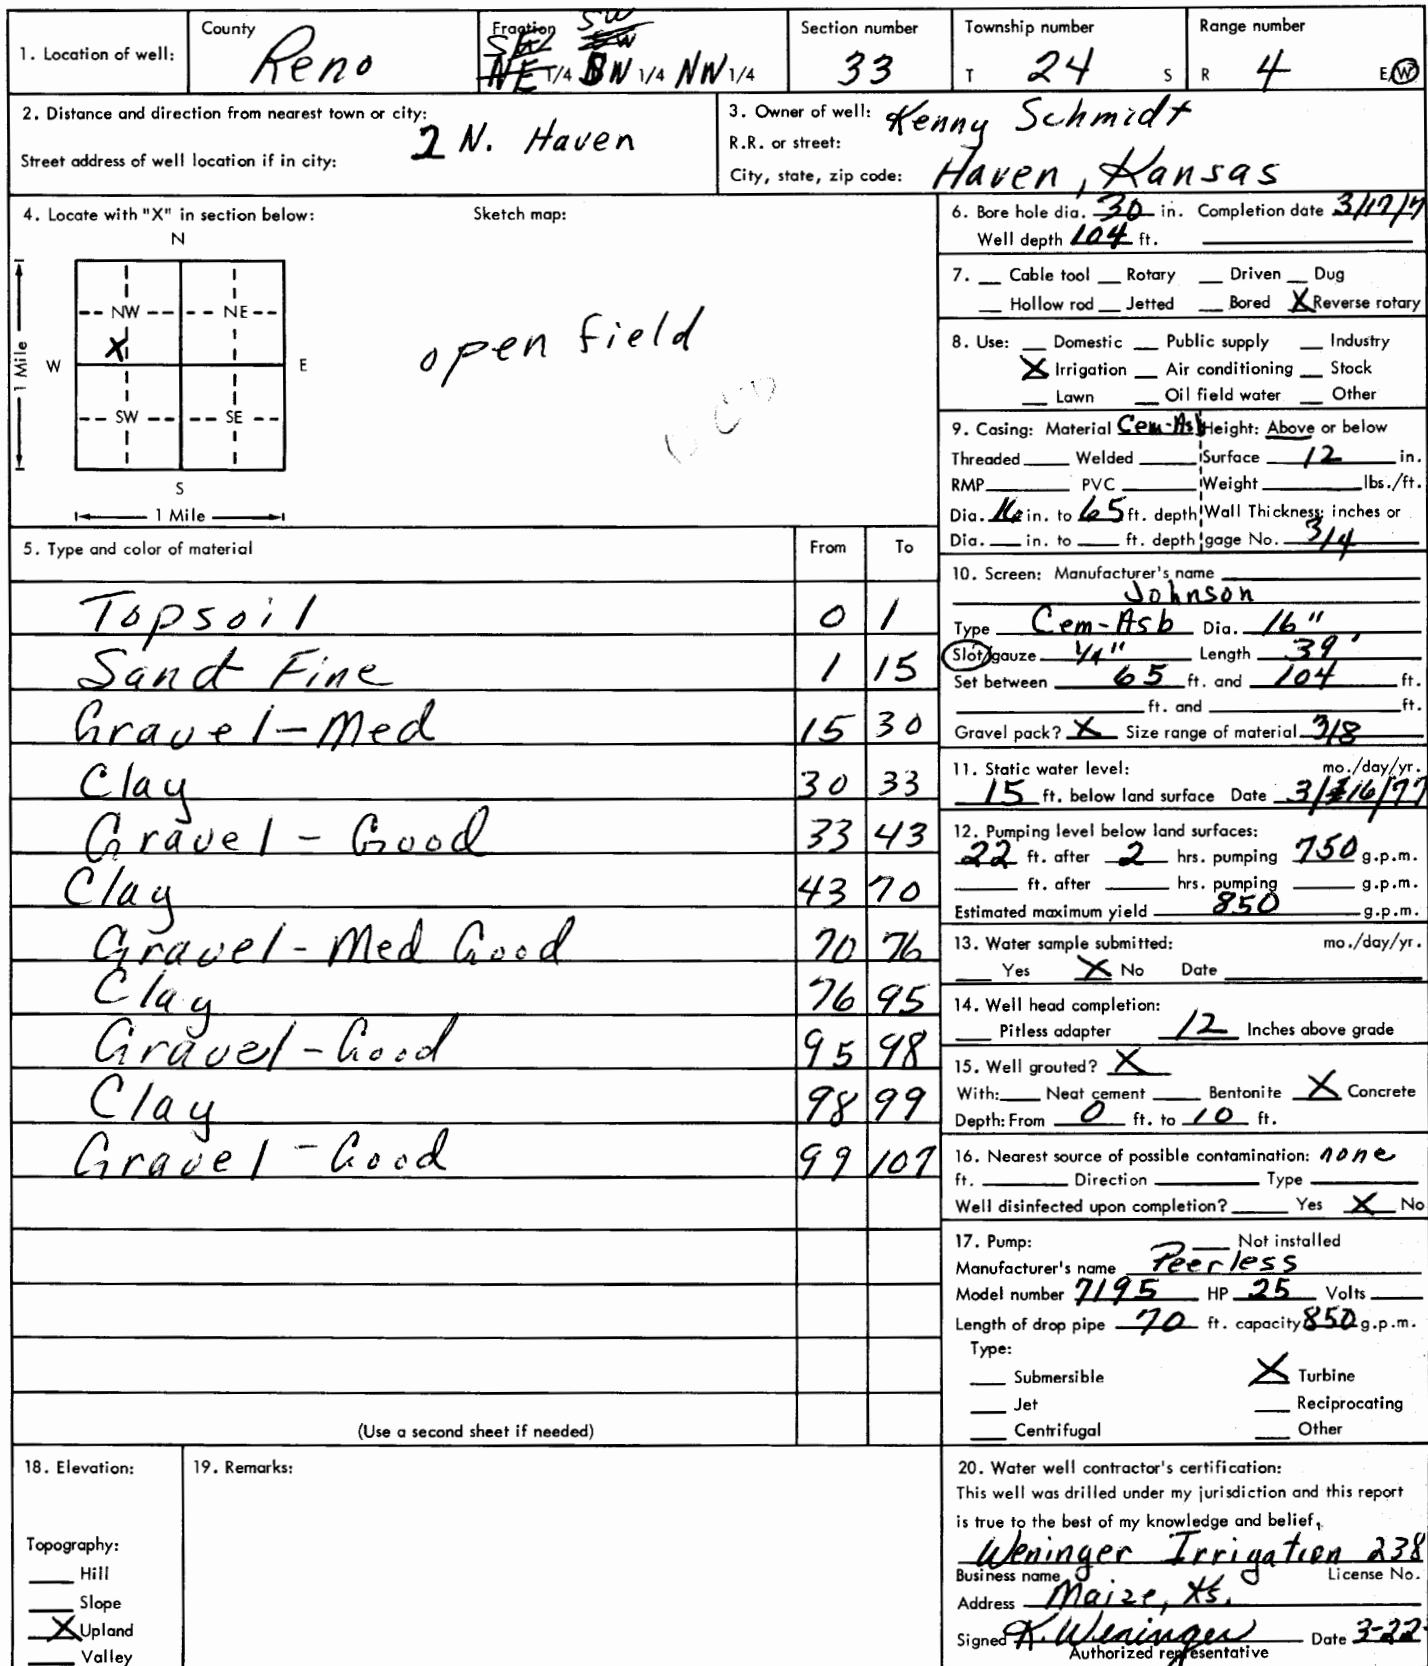 1. Location of well: County Reno Fraction SE 1/4 SW 1/4 NW 1/4 Section number 33 Township number T 24 S Range number R 4 E/W
2. Distance and direction from nearest town or city: 2 N. Haven
Street address of well location if in city:
3. Owner of well: Kenny Schmidt
R.R. or street:
City, state, zip code: Haven, Kansas
4. Locate with "X" in section below: Sketch map:
N
NW NE
X
W E
1 Mile
SW SE
S
1 Mile
open field
5. Type and color of material From To
Topsoil 0 1
Sand Fine 1 15
Gravel-Med 15 30
Clay 30 33
Gravel - Good 33 43
Clay 43 70
Gravel-Med Good 70 76
Clay 76 95
Gravel-Good 95 98
Clay 98 99
Gravel-Good 99 107
(Use a second sheet if needed)
6. Bore hole dia. 30 in. Completion date 3/17/7
Well depth 104 ft.
7. __ Cable tool __ Rotary __ Driven __ Dug
__ Hollow rod __ Jetted __ Bored X Reverse rotary
8. Use: __ Domestic __ Public supply __ Industry
X Irrigation __ Air conditioning __ Stock
__ Lawn __ Oil field water __ Other
9. Casing: Material Cem-Asb Height: Above or below
Threaded ____ Welded ____ Surface 12 in.
RMP ____ PVC ____ Weight ____ lbs./ft.
Dia. 16 in. to 65 ft. depth Wall Thickness: inches or
Dia. __ in. to __ ft. depth gage No. 3/4
10. Screen: Manufacturer's name
Johnson
Type Cem-Asb Dia. 16"
Slot/gauze 1/4" Length 39'
Set between 65 ft. and 104 ft.
____ ft. and ____ ft.
Gravel pack? X Size range of material 3/8
11. Static water level: mo./day/yr.
15 ft. below land surface Date 3/16/77
12. Pumping level below land surfaces:
22 ft. after 2 hrs. pumping 750 g.p.m.
____ ft. after ____ hrs. pumping ____ g.p.m.
Estimated maximum yield 850 g.p.m.
13. Water sample submitted: mo./day/yr.
__ Yes X No Date ____
14. Well head completion:
__ Pitless adapter 12 Inches above grade
15. Well grouted? X
With: __ Neat cement __ Bentonite X Concrete
Depth: From 0 ft. to 10 ft.
16. Nearest source of possible contamination: none
ft. ____ Direction ____ Type ____
Well disinfected upon completion? ____ Yes X No
17. Pump: __ Not installed
Manufacturer's name Peerless
Model number 7195 HP 25 Volts ____
Length of drop pipe 70 ft. capacity 850 g.p.m.
Type:
__ Submersible X Turbine
__ Jet __ Reciprocating
__ Centrifugal __ Other
18. Elevation:
Topography:
__ Hill
__ Slope
X Upland
__ Valley
19. Remarks:
20. Water well contractor's certification:
This well was drilled under my jurisdiction and this report
is true to the best of my knowledge and belief,
Weninger Irrigation 238
Business name License No.
Address Maize, Ks.
Signed K. Weninger Date 3-22-
Authorized representative